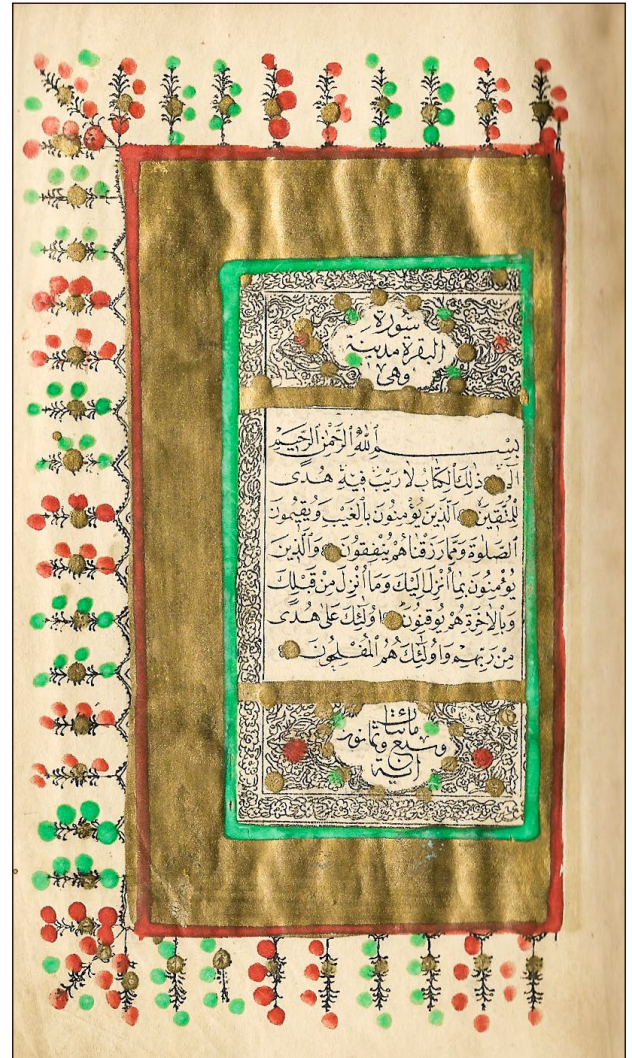 سورة
البقرة مدنية
وهي
بِسْمِ اللهِ الرَّحْمٰنِ الرَّحِيمِ
الٓمٓ ذٰلِكَ الْكِتَابُ لَا رَيْبَ فِيهِ هُدًى
لِلْمُتَّقِينَ الَّذِينَ يُؤْمِنُونَ بِالْغَيْبِ وَيُقِيمُونَ
الصَّلٰوةَ وَمِمَّا رَزَقْنَاهُمْ يُنْفِقُونَ وَالَّذِينَ
يُؤْمِنُونَ بِمَا اُنْزِلَ اِلَيْكَ وَمَا اُنْزِلَ مِنْ قَبْلِكَ
وَبِالْاٰخِرَةِ هُمْ يُوقِنُونَ اُولٰئِكَ عَلٰى هُدًى
مِنْ رَبِّهِمْ وَاُولٰئِكَ هُمُ الْمُفْلِحُونَ
مائتان
وسبع وثمانون
آية